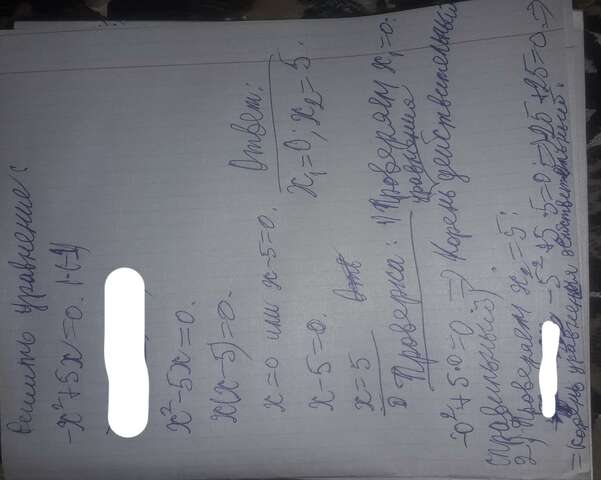 Решить уравнение:
-x²+5x=0. |·(-1)
x²-5x=0.
x(x-5)=0.
x=0 или x-5=0.
x-5=0.
x=5
Ответ:
x₁=0; x₂=5.
Проверка: 1) Проверяем x₁=0.
уравнения
-0²+5·0=0 => Корень действительный
справильный)
2) Проверяем x₂=5:
-5²+5·5=0 => -25+25=0. =>
= Корень уравнения действительный.